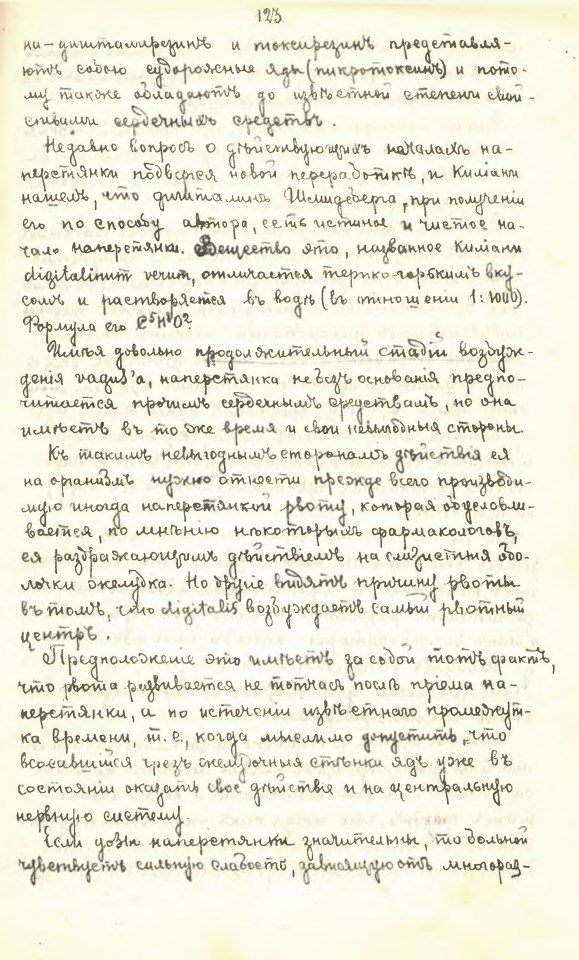 123
на-дигиталирезинъ и токсирезинъ представля-
ютъ собою судорожные яды (пикротоксинъ) и пото-
му также обладаютъ до извѣстной степени свой-
ствами сердечныхъ средствъ.
Недавно вопросъ о дѣйствующихъ началахъ на-
перстянки подвергся новой переработкѣ, и Килиани
нашелъ, что дигиталинъ Шмидеберга, при полученіи
его по способу автора, есть истиное и чистое на-
чало наперстянки. Вещество это, названное Килиани
digitalinum verum, отличается терпко-горькимъ вку-
сомъ и растворяется въ водѣ (въ отношеніи 1:1000).
Формула его
Имѣя довольно продолжительный стадій возбуж-
денія vagus'a, наперстянка не безъ основанія предпо-
читается прочимъ сердечнымъ средствамъ, но она
имѣетъ въ то же время и свои невыгодныя стороны.
Къ такимъ невыгоднымъ сторонамъ дѣйствія ея
на организмъ нужно отнести прежде всего производи-
мую иногда наперстянкой рвоту, которая обусловли-
вается, по мнѣнію нѣкоторыхъ фармакологовъ,
ея раздражающимъ дѣйствіемъ на слизистыя обо-
лочки желудка. Но другіе видятъ причину рвоты
въ томъ, что digitalis возбуждаетъ самый рвотный
центръ.
Предположеніе это имѣетъ за собой тотъ фактъ,
что рвота развивается не тотчасъ послѣ пріема на-
перстянки, а по истеченіи извѣстнаго промежут-
ка времени, т. е., когда мыслимо допустить, что
всосавшійся чрезъ желудочныя стѣнки ядъ уже въ
состояніи оказать свое дѣйствіе и на центральную
нервную систему.
Если дозы наперстянки значительны, то больной
чувствуетъ сильную слабость, зависящую отъ многораз-